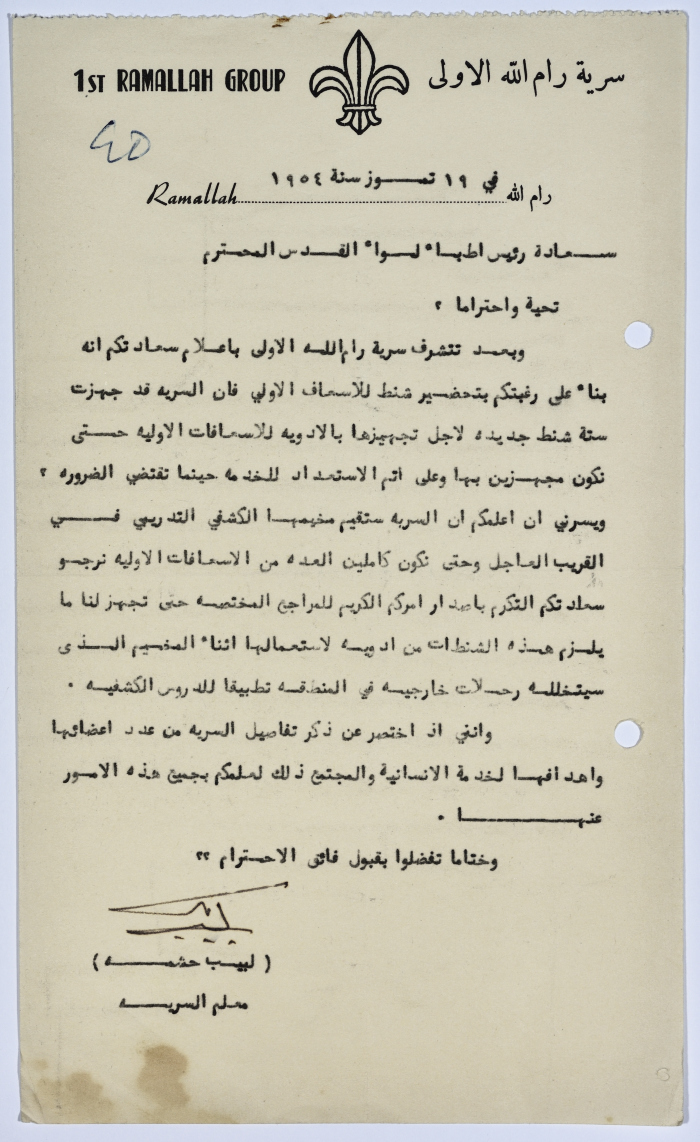 1ST RAMALLAH GROUP
سرية رام الله الاولى
في ١٩ تمـــوز سنة ١٩٥٤
Ramallah رام الله
ســعادة رئيس اطباء لـواء القـدس المحـترم
تحية واحتراما ؟
وبعـد تتشرف سرية رام اللـه الاولى باعـلام سعادتكم انه
بناء على رغبتكم بتحضـير شنط للاسعاف الاولي فان السريه قد جهزت
ستة شنط جديده لاجل تجهيزها بالادويه للاسعافات الاوليه حـتى
نكون مجهـزين بها وعلى اتم الاستعداد للخدمه حينما تقتضي الضروره ؟
ويسرني ان اعلمكم ان السريه ستقيم مخيمهـا الكشفي التدريبي فــي
القريب العاجل وحتى نكون كاملين العده من الاسعافات الاوليه نرجـو
سعادتكم التكرم باصدار امركم الكريم للمراجع المختصه حتى تجهز لنا ما
يلـزم هـذه الشنطات من ادويـه لاستعمالها اثناء المخـيم الـذى
سيتخللـه رحـلات خارجيه في المنطقـه تطبيقا للدروس الكشفيـه .
وانني اذ اختصر عن ذكر تفاصيل السريه من عدد اعضائهـا
واهدافهـا لخدمة الانسانية والمجتمع ذلك لعلمكم بجميع هذه الامـور
عنهـــــا .
وختاما تفضلوا بقبول فائق الاحـترام ؟؟
( لبيـب حشمـــه )
معلم السريـــه